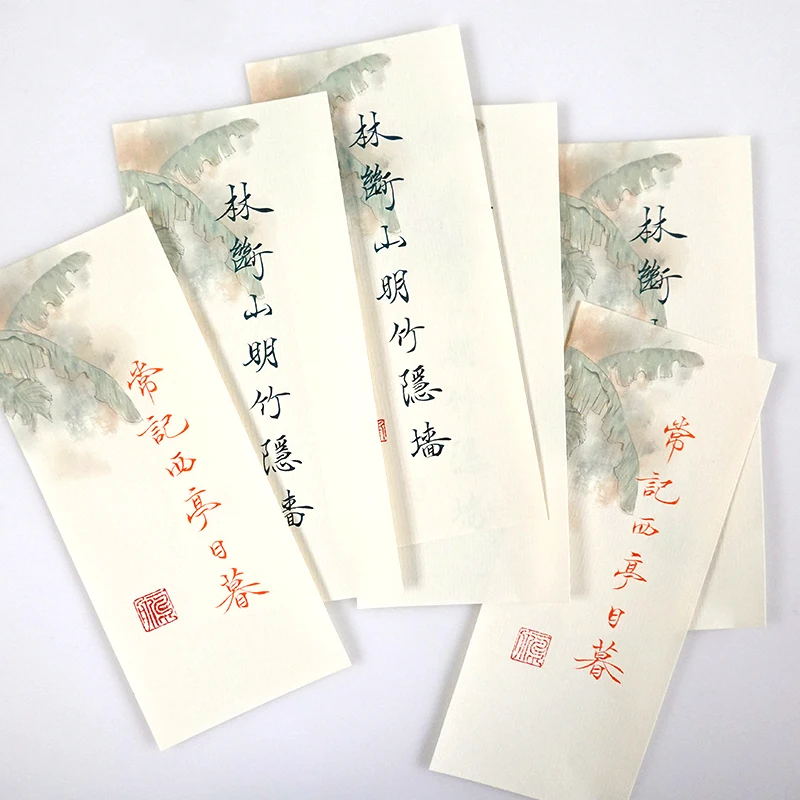 常記西亭日暮
林斷山明竹隱
林斷山明竹隱墙
林斷
常記西亭日暮